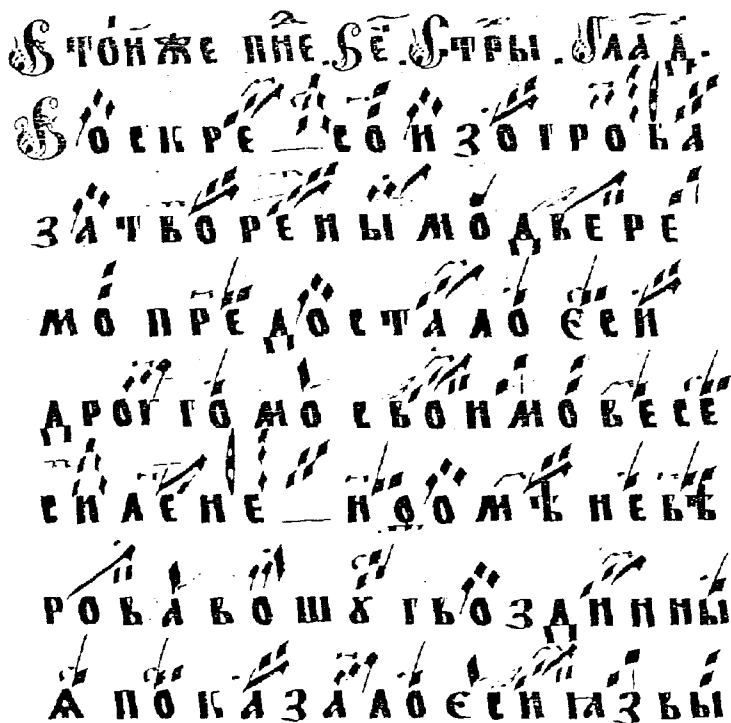 В тоиже пн҃е. Вє҃. Стр҃ы. Гла҃ д҃.
Воскре сонзогроба
затворенымодвере
мо предосталоєси
дрогомосвоимовесе
силене ноомѣневѣ
ровавошꙋгвоздинны
ѧпоказалоєсиꙗзвы